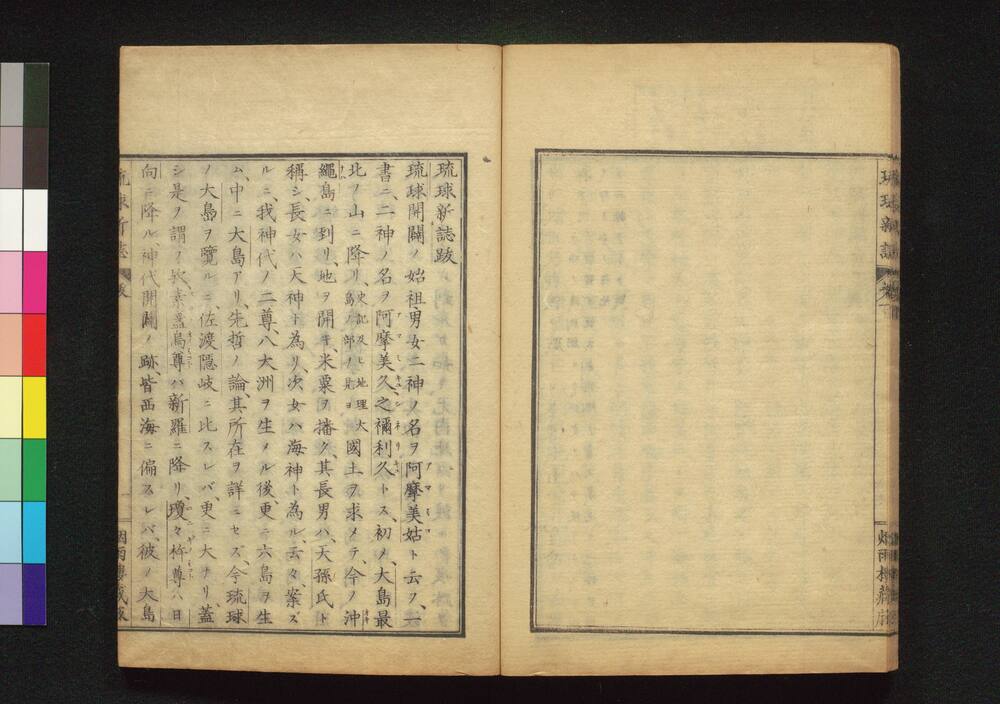 琉球新誌跋
琉球開闢ノ始祖男女二神ノ名ヲ阿摩美姑ト云フ、一
書ニ、二神ノ名ヲ阿摩美久之禰利久トス、初メ、大島最
北ノ山ニ降リ、史記及ヒ地理大島部ノ見ヨ國土ヲ求メテ、今ノ沖
繩島ニ到リ、地ヲ開キ米粟ヲ播ク、其長男ハ、天孫氏ト
稱シ、長女ハ天神ト為リ、次女ハ海神ト為ル、云々、案ズ
ルニ、我神代ノ二尊、八大洲ヲ生メル後、更ニ六島ヲ生
ム、中ニ大島アリ、先哲ノ論、其所在ヲ詳ニセズ、今琉球
ノ大島ヲ覽ルニ、佐渡隠岐ニ比スレバ、更ニ大ナリ、蓋
シ是ノ謂ノ歟、素盞烏尊ハ新羅ニ降リ、瓊々杵尊ハ日
向ニ降ル、神代開闢ノ跡、皆西海ニ偏スレバ、彼ノ大島
琉球新誌
跋
烟雨樓藏版
琉球新誌
烟雨樓藏版